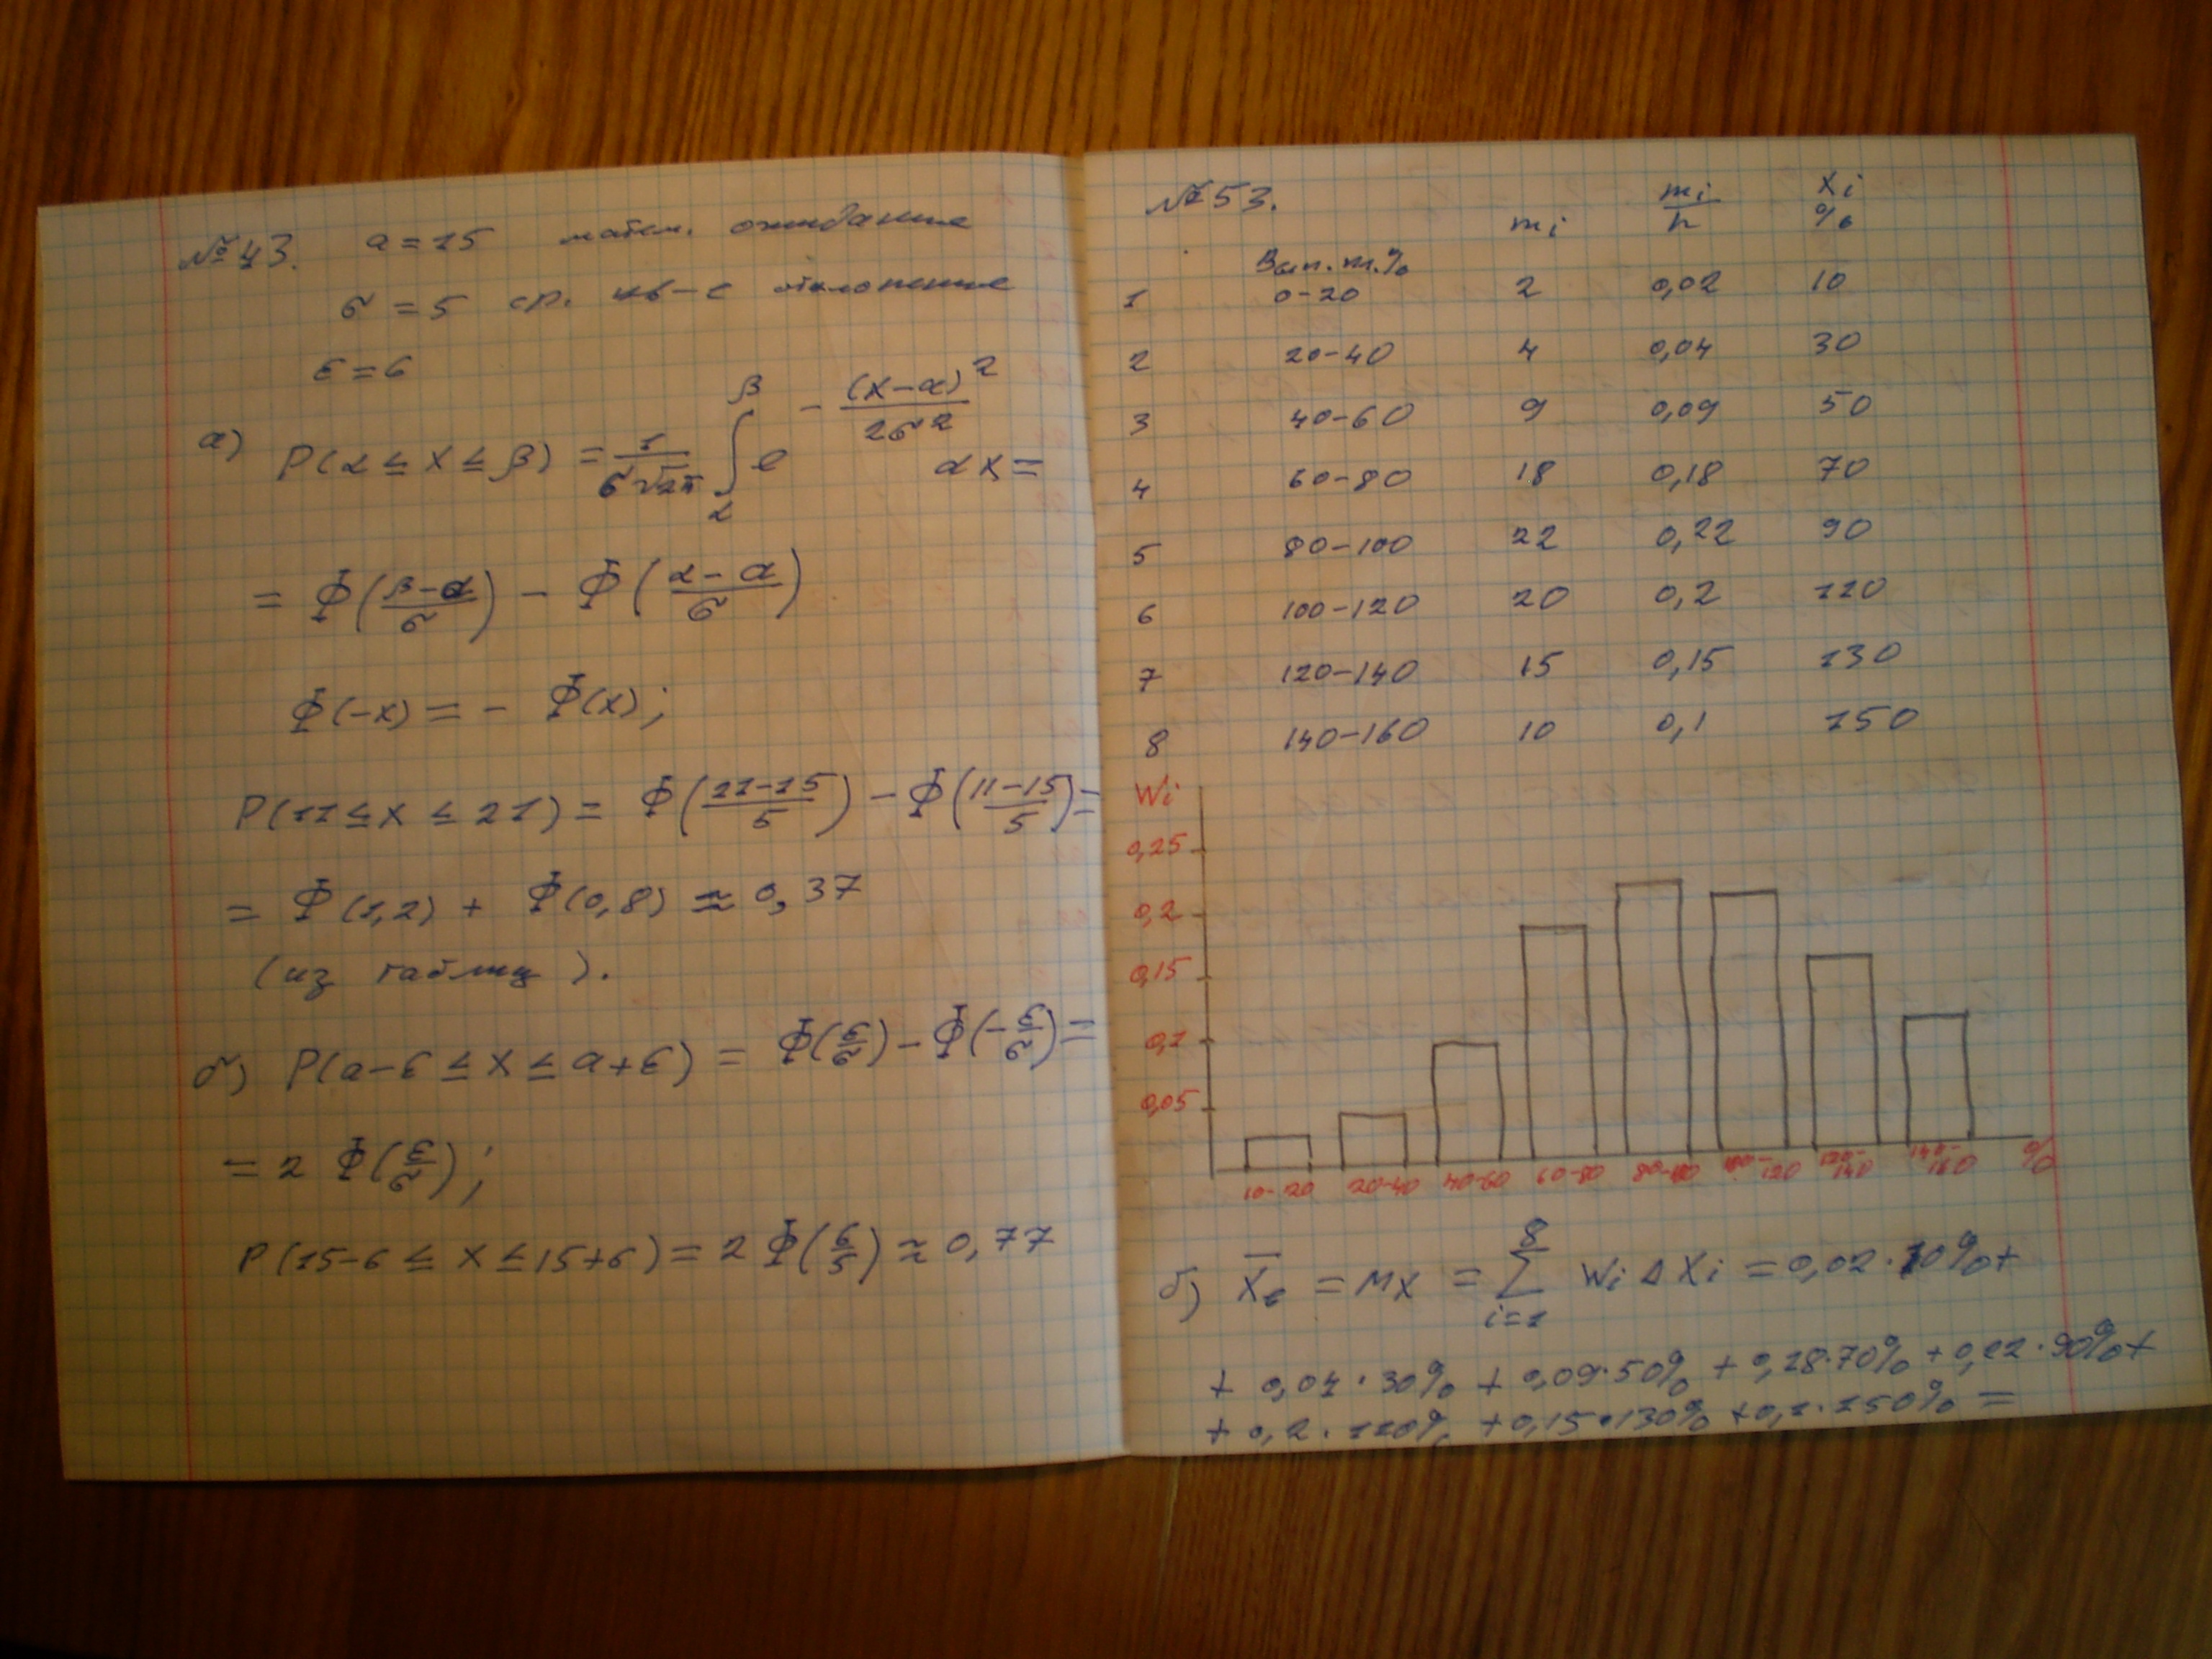 №43. a = 15 матем. ожидание
σ = 5 ср. кв-е отклонение
ε = 6
а) P(α ≤ X ≤ β) = 1/(σ√2π) ∫_α^β e^(-(x-a)²/2σ²) dx =
= Ф((β-a)/σ) - Ф((α-a)/σ)
Ф(-x) = - Ф(x);
P(11 ≤ X ≤ 21) = Ф((21-15)/5) - Ф((11-15)/5) =
= Ф(1,2) + Ф(0,8) ≈ 0,37
(из таблиц).
б) P(a-ε ≤ X ≤ a+ε) = Ф(ε/σ) - Ф(-ε/σ) =
= 2 Ф(ε/σ);
P(15-6 ≤ X ≤ 15+6) = 2 Ф(6/5) ≈ 0,77
№53.
Вып. т.% mi mi/n Xi %
1 0-20 2 0,02 10
2 20-40 4 0,04 30
3 40-60 9 0,09 50
4 60-80 18 0,18 70
5 80-100 22 0,22 90
6 100-120 20 0,2 110
7 120-140 15 0,15 130
8 140-160 10 0,1 150
Wi
0,25
0,2
0,15
0,1
0,05
10-20 20-40 40-60 60-80 80-100 100-120 120-140 140-160 %
б) X̄в = MX = Σ_{i=1}^8 Wi Δ Xi = 0,02·10% +
+ 0,04·30% + 0,09·50% + 0,18·70% + 0,22·90% +
+ 0,2·110% + 0,15·130% + 0,1·150% =